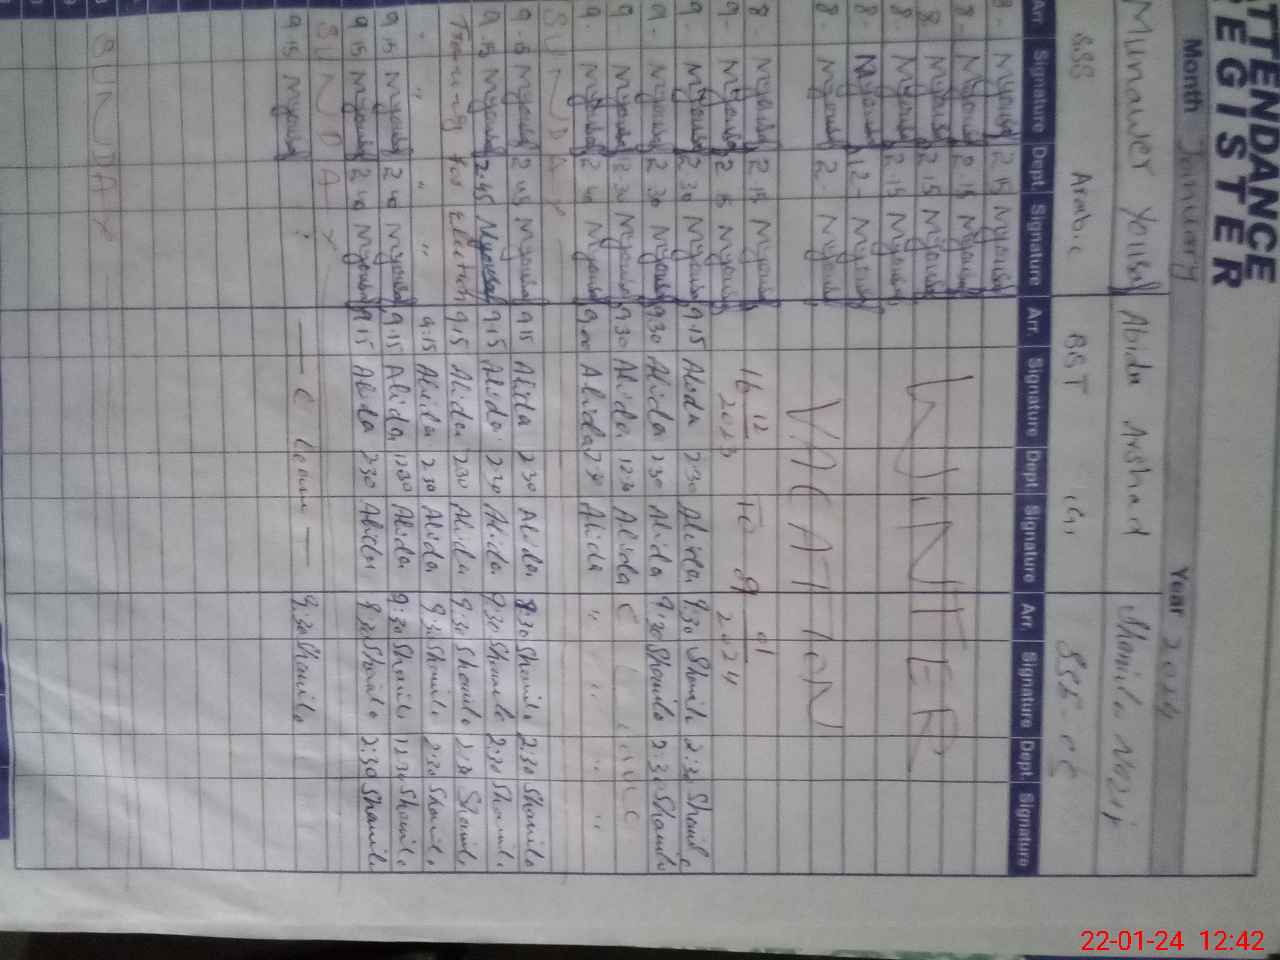 TTENDANCE
EGISTER
Month January Year 2024
Munawer Yousaf Abida Arshad Shamila
SSS Arabic
Arr. Signature Dept. Signature Arr. Signature Dept. Signature Arr. Signature Dept. Signature
8- Myousaf 2 15 Myousaf
8- Myousaf 2 15 Myousaf
8 Myousaf 2 15 Myousaf
8- Myousaf 2 15 Myousaf
8- Myousaf 12- Myousaf
8- Myousaf 2- Myousaf
WINTER
VACATION
16 12 2023 To 9 01 2024
8- Myousaf 2 15 Myousaf
9- Myousaf 2 15 Myousaf
9- Myousaf 2 30 Myousaf 9.15 Abida 2 30 Abida 9:30 Shamila 2:30 Shamila
9- Myousaf 2 30 Myousaf 9 30 Abida 2 30 Abida 9:30 Shamila 2:30 Shamila
9- Myousaf 12 30 Myousaf 9 30 Abida 12 30 Abida C
9- Myousaf 2 40 Myousaf 9 00 Abida 2 30 Abida " " " "
SUNDAY
9-15 Myousaf 2 45 Myousaf 9 15 Abida 2 30 Abida 8:30 Shamila 2:30 Shamila
9.15 Myousaf 2.45 Myousaf 9.15 Abida 2 30 Abida 9:30 Shamila 2:30 Shamila
Training for Election 9.15 Abida 2 30 Abida 9:30 Shamila 2:30 Shamila
" " " " 9.15 Abida 2 30 Abida 9:30 Shamila 2:30 Shamila
9.15 Myousaf 12 40 Myousaf 9.15 Abida 12 30 Abida 9:30 Shamila 12 30 Shamila
9 15 Myousaf 2 40 Myousaf 9.15 Abida 2 30 Abida 9:30 Shamila 2:30 Shamila
SUNDAY
9 15 Myousaf — C Leave — 9:30 Shamila
SUNDAY
22-01-24 12:42